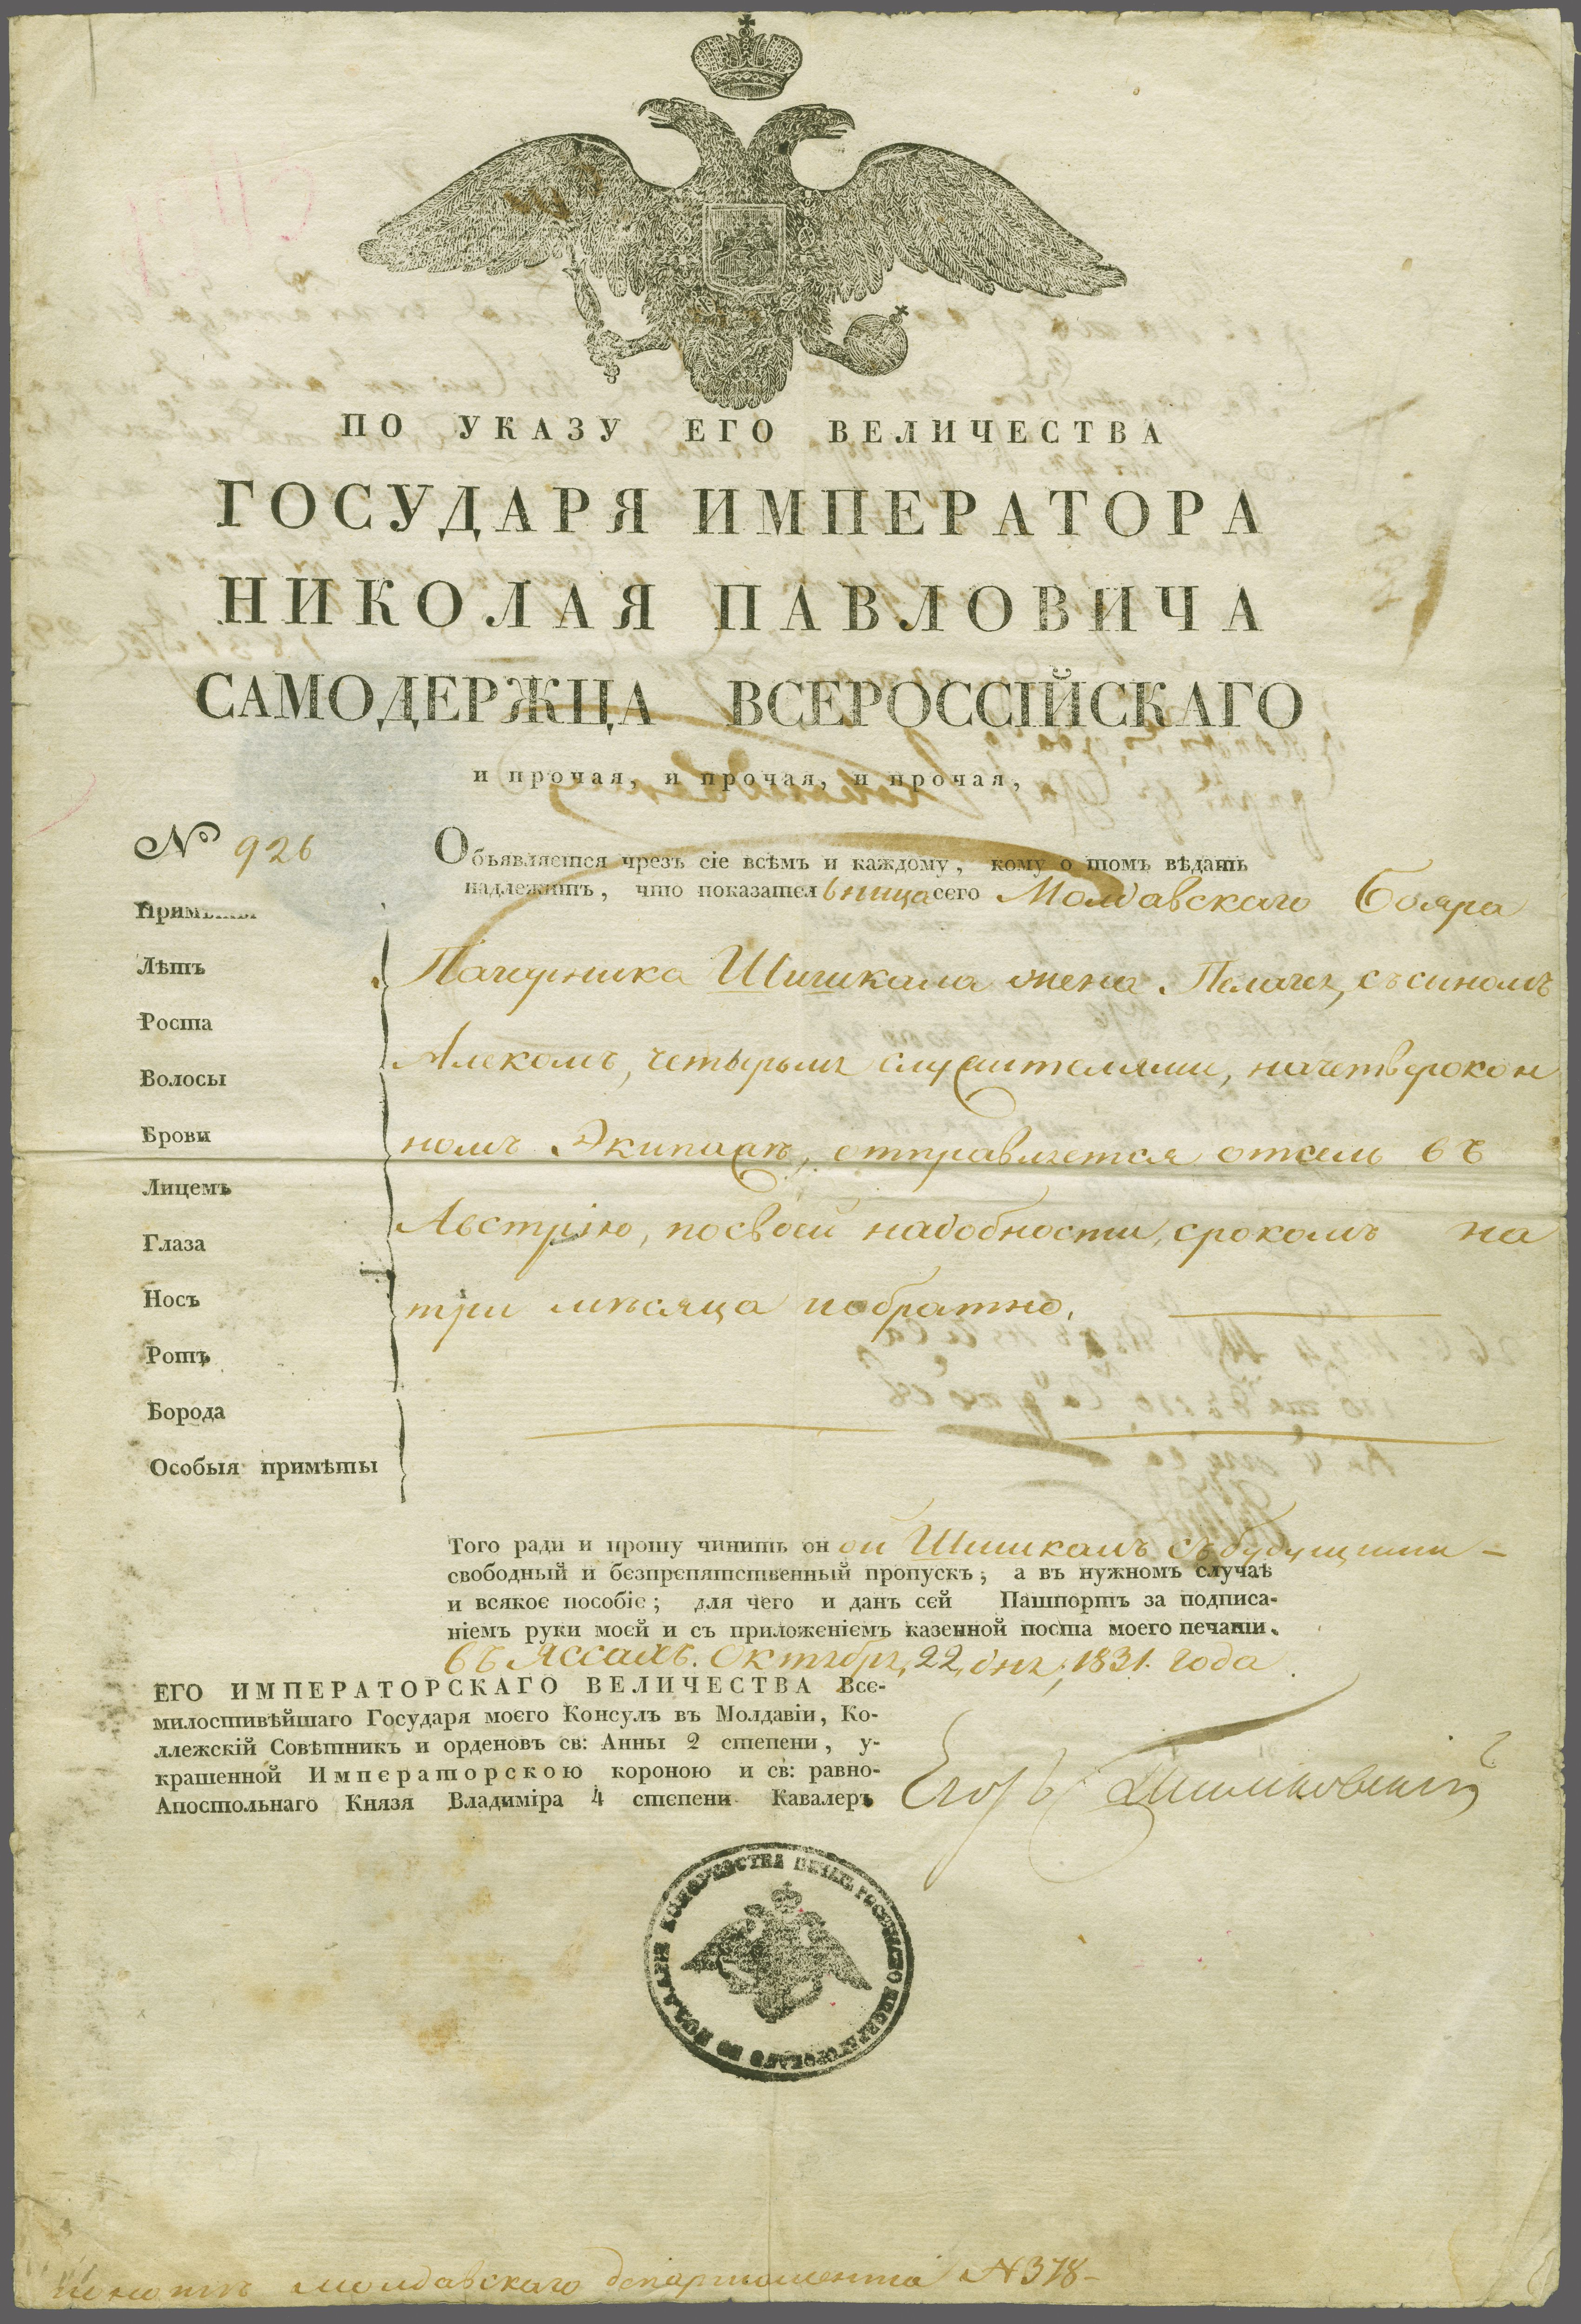 ПО УКАЗУ ЕГО ВЕЛИЧЕСТВА
ГОСУДАРЯ ИМПЕРАТОРА
НИКОЛАЯ ПАВЛОВИЧА
САМОДЕРЖЦА ВСЕРОССІЙСКАГО
и прочая, и прочая, и прочая,
№ 926
Объявляется чрезъ сіе всѣмъ и каждому, кому о томъ вѣдать
надлежитъ, что показательница сего Молдавскаго Бояра
Шишкала жена Пелагея, съ сыномъ
Алекомъ, четырьмя служителями, на четверокон
номъ Экипажѣ, отправляется отсель въ
Австрію, по своей надобности, срокомъ на
три мѣсяца и обратно.
Примѣты
Лѣтъ
Роста
Волосы
Брови
Лицемъ
Глаза
Носъ
Ротъ
Борода
Особыя примѣты
Того ради и прошу чинить оной съ будущими
свободный и безпрепятственный пропускъ; а въ нужномъ случаѣ
и всякое пособіе; для чего и данъ сей Пашпортъ за подписа-
ніемъ руки моей и съ приложеніемъ казенной поста моего печати.
въ Яссахъ. Октября, 22, дня, 1831. года
ЕГО ИМПЕРАТОРСКАГО ВЕЛИЧЕСТВА Все-
милостивѣйшаго Государя моего Консулъ въ Молдавіи, Ко-
ллежскій Совѣтникъ и орденовъ св: Анны 2 степени, у-
крашенной Императорскою короною и св: равно-
Апостольнаго Князя Владиміра 4 степени Кавалеръ
Егоръ
молдавскаго департамента №378